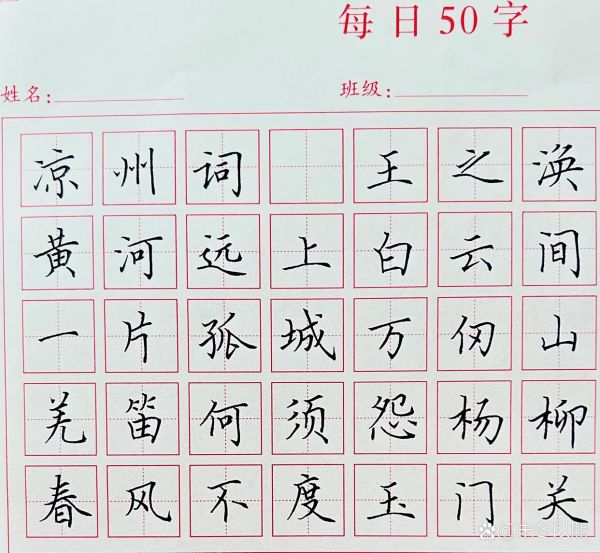 每日50字
姓名： 班级：
凉州词 王之涣
黄河远上白云间
一片孤城万仞山
羌笛何须怨杨柳
春风不度玉门关